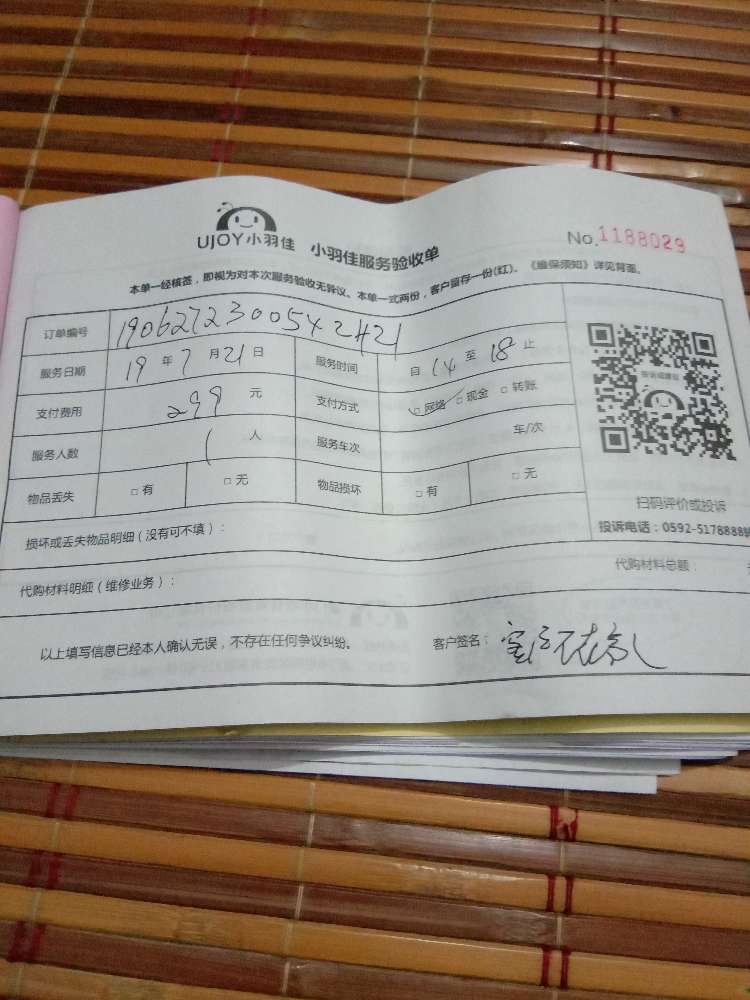 UJOY小羽佳 小羽佳服务验收单 No.1188029
本单一经核签，即视为对本次服务验收无异议。本单一式两份，客户留存一份(红)。《维保须知》详见背面。
订单编号 1906272300542421
服务日期 19 年 7 月 21 日 服务时间 自 14 至 18 止
支付费用 299 元 支付方式 □ 网络 □ 现金 □ 转账
服务人数 1 人 服务车次 车/次
物品丢失 □ 有 □ 无 物品损坏 □ 有 □ 无
扫码评价或投诉
投诉电话：0592-5178888
损坏或丢失物品明细（没有可不填）：
代购材料明细（维修业务）： 代购材料总额：
以上填写信息已经本人确认无误，不存在任何争议纠纷。 客户签名：